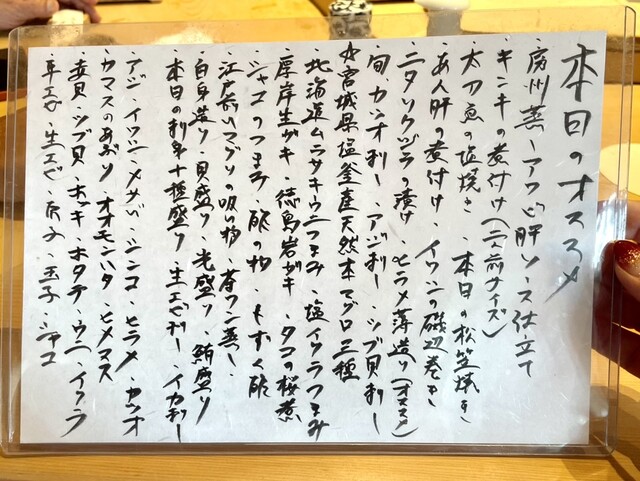 本日のオススメ
・房州蒸しアワビ肝ソース仕立て
・キンキの煮付け(二人前サイズ)
・太刀魚の塩焼き ・本日の松笠焼き
・あん肝の煮付け ・イワシの磯辺巻き
・ニタリクジラの漬け ・ヒラメ薄造り(オススメ)
・旬カツオ刺し ・アジ刺し ・ツブ貝刺し
☆宮城県塩釜産天然本マグロ三種
・北海道ムラサキウニつまみ ・塩イクラつまみ
・厚岸生ガキ ・徳島岩ガキ ・タコの桜煮
・シャコのつまみ ・酢の物 ・もずく酢
・江戸長ハマグリの吸い物 ・茶ワン蒸し
・白身造り ・貝盛り ・光盛り ・鮪盛り
・本日の刺身十種盛り ・生エビ刺し ・イカ刺し
・アジ・イワシ・メサバ・シンコ・ヒラメ・カツオ
・カマスのあぶり・オオモンハタ・ヒメマス
・赤貝・ツブ貝・ホッキ・ホタテ・ウニ・イクラ
・車エビ・生エビ・穴子・玉子・シャコ